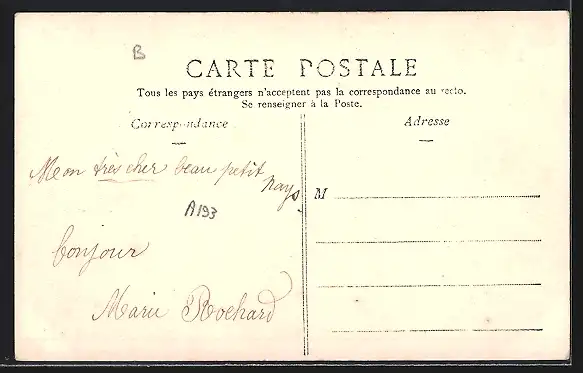 B
CARTE POSTALE
Tous les pays étrangers n'acceptent pas la correspondance au recto.
Se renseigner à la Poste.
Correspondance
Adresse
Mon très cher beau petit pays
M
A193
bonjour
Marie Rochard